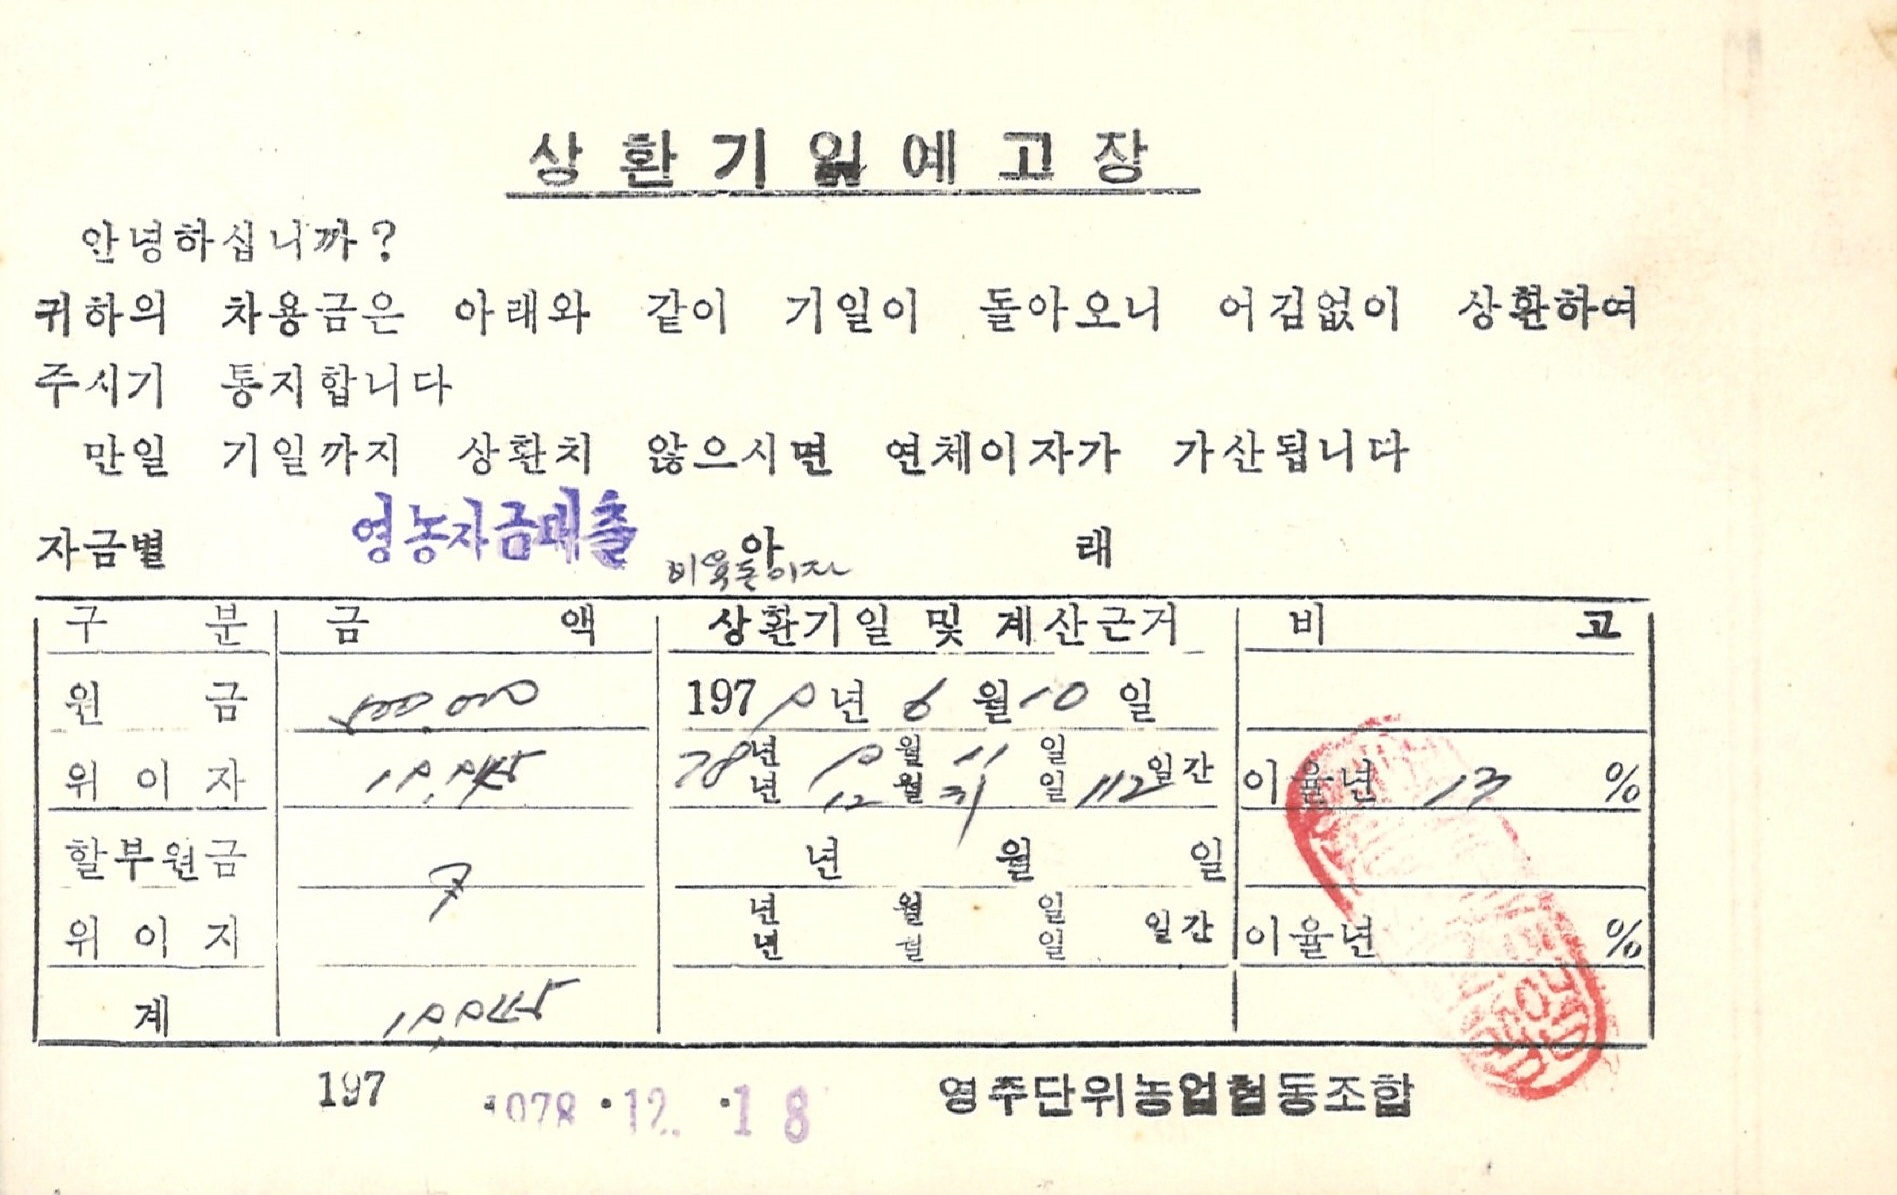 상환기일예고장
안녕하십니까?
귀하의 차용금은 아래와 같이 기일이 돌아오니 어김없이 상환하여
주시기 통지합니다
만일 기일까지 상환치 않으시면 연체이자가 가산됩니다
자금별 영농자금대출 아 래
비육돈이자
구 분 금 액 상환기일 및 계산근거 비 고
원 금 500,000 1979년 6월 10일
위 이 자 19,945 78년 9월 11일
년 12월 31일 112일간 이율년 13 %
할부원금 년 월 일
위 이 자 년 월 일
년 월 일 일간 이율년 %
계 19,945
197 1978.12.18 영주단위농업협동조합